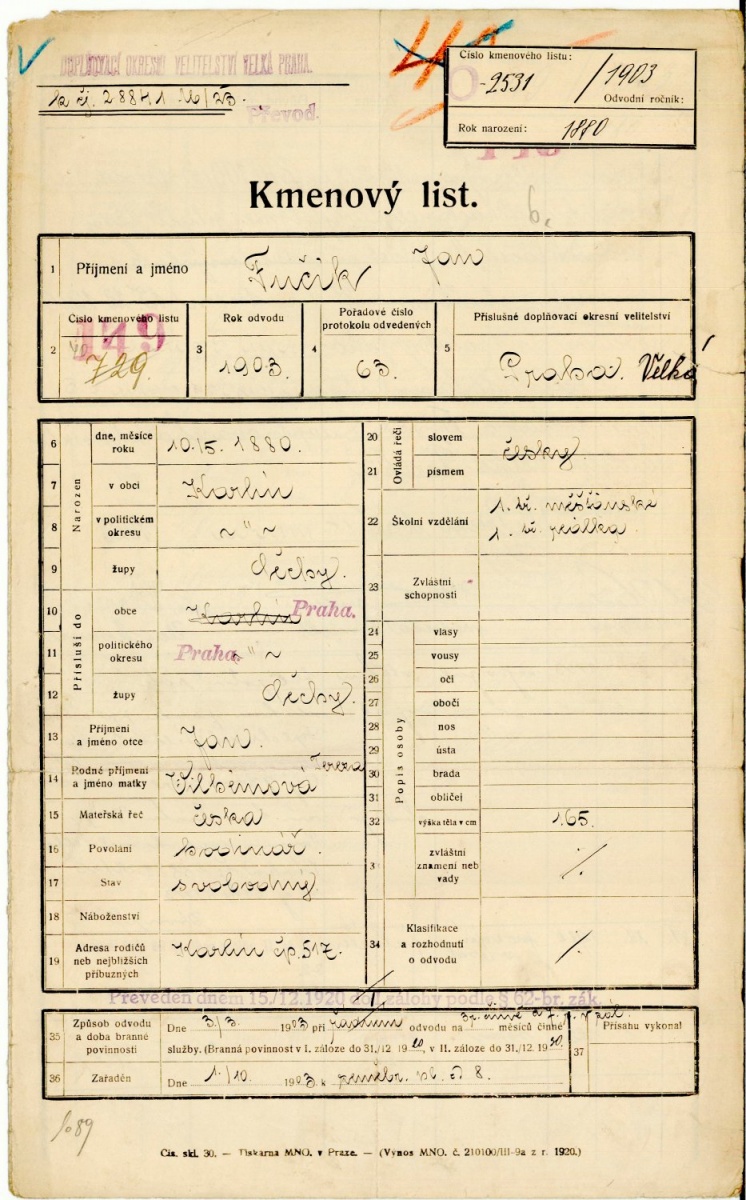 DOPLŇOVACÍ OKRESNÍ VELITELSTVÍ VELKÁ PRAHA.
k čj. 28841
Převod.
Číslo kmenového listu:
2531 / 1903
Odvodní ročník:
Rok narození: 1880
Kmenový list.
6.
1 Příjmení a jméno Fučík Jan
2 Číslo kmenového listu 149 729.
3 Rok odvodu 1903.
4 Pořadové číslo protokolu odvedených 63.
5 Příslušné doplňovací okresní velitelství Praha. Velká
Narozen
6 dne, měsíce roku 10./5. 1880.
7 v obci Karlín
8 v politickém okresu ~ " ~
9 župy Čechy.
Přísluší do
10 obce Karlín Praha.
11 politického okresu Praha. " ~
12 župy Čechy.
13 Příjmení a jméno otce Jan.
14 Rodné příjmení a jméno matky Terezie
15 Mateřská řeč česká
16 Povolání hodinář.
17 Stav svobodný
18 Náboženství
19 Adresa rodičů neb nejbližších příbuzných Karlín čp. 517.
Ovládá řeči
20 slovem česky.
21 písmem
22 Školní vzdělání 1. tř. měšťanské
23 Zvláštní schopnosti
Popis osoby
24 vlasy
25 vousy
26 oči
27 obočí
28 nos
29 ústa
30 brada
31 obličej
32 výška těla v cm 165.
3 zvláštní znamení neb vady ./.
34 Klasifikace a rozhodnutí o odvodu ./.
Převeden dnem 15./12.1920 do I zálohy podle § 62-br. zák.
35 Způsob odvodu a doba branné povinnosti
Dne 3./3. 1903 při řádném odvodu na měsíců činné
služby. (Branná povinnost v I. záloze do 31./12 1920, v II. záloze do 31./12. 1930.
36 Zařaděn Dne 1./10. 1903 k pl. č. 8.
37 Přísahu vykonal
1089
Čís. skl. 30. — Tiskárna MNO. v Praze. — (Výnos MNO. č. 210100/III-9a z r. 1920.)